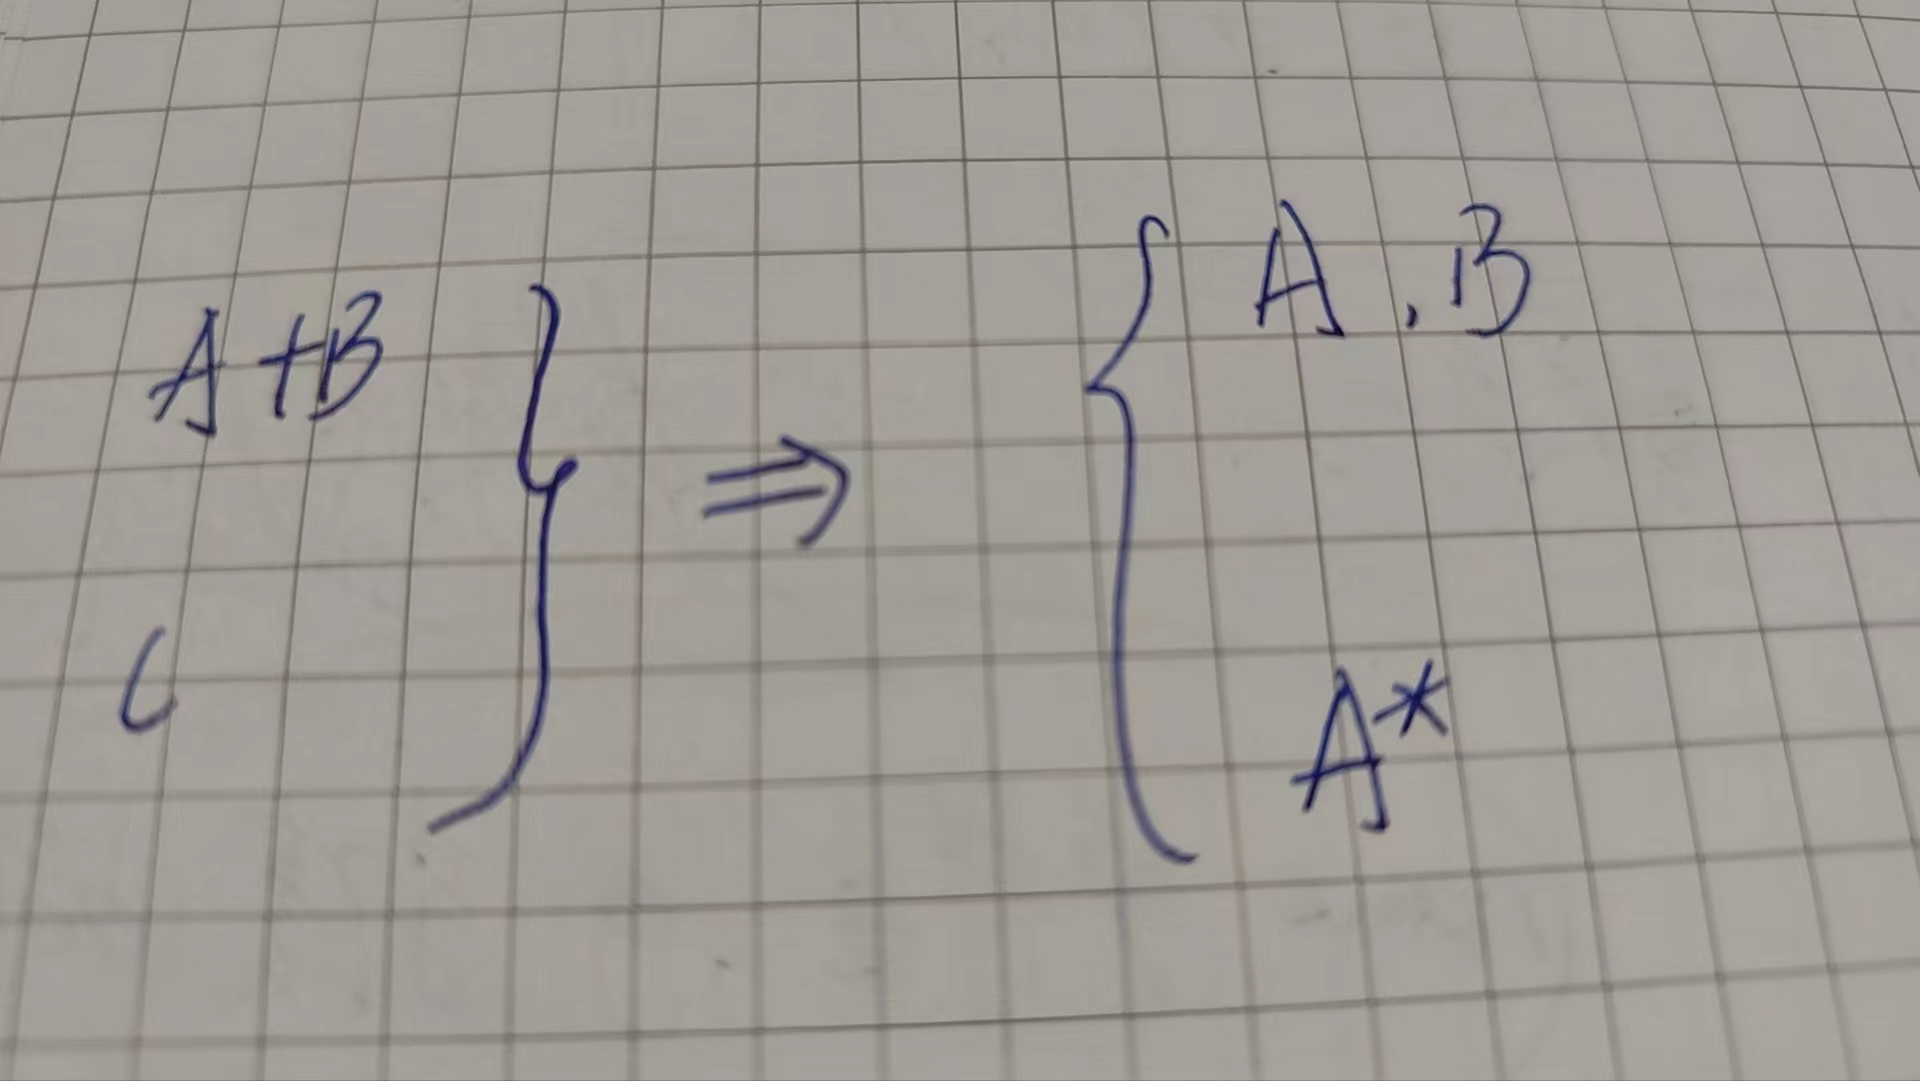 A+B
C
} ⇒ {
A, B
A*